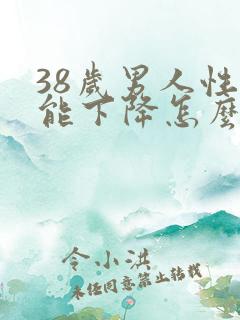 38歲男人性
能下降怎麼
令小洪
未经同意禁止转载